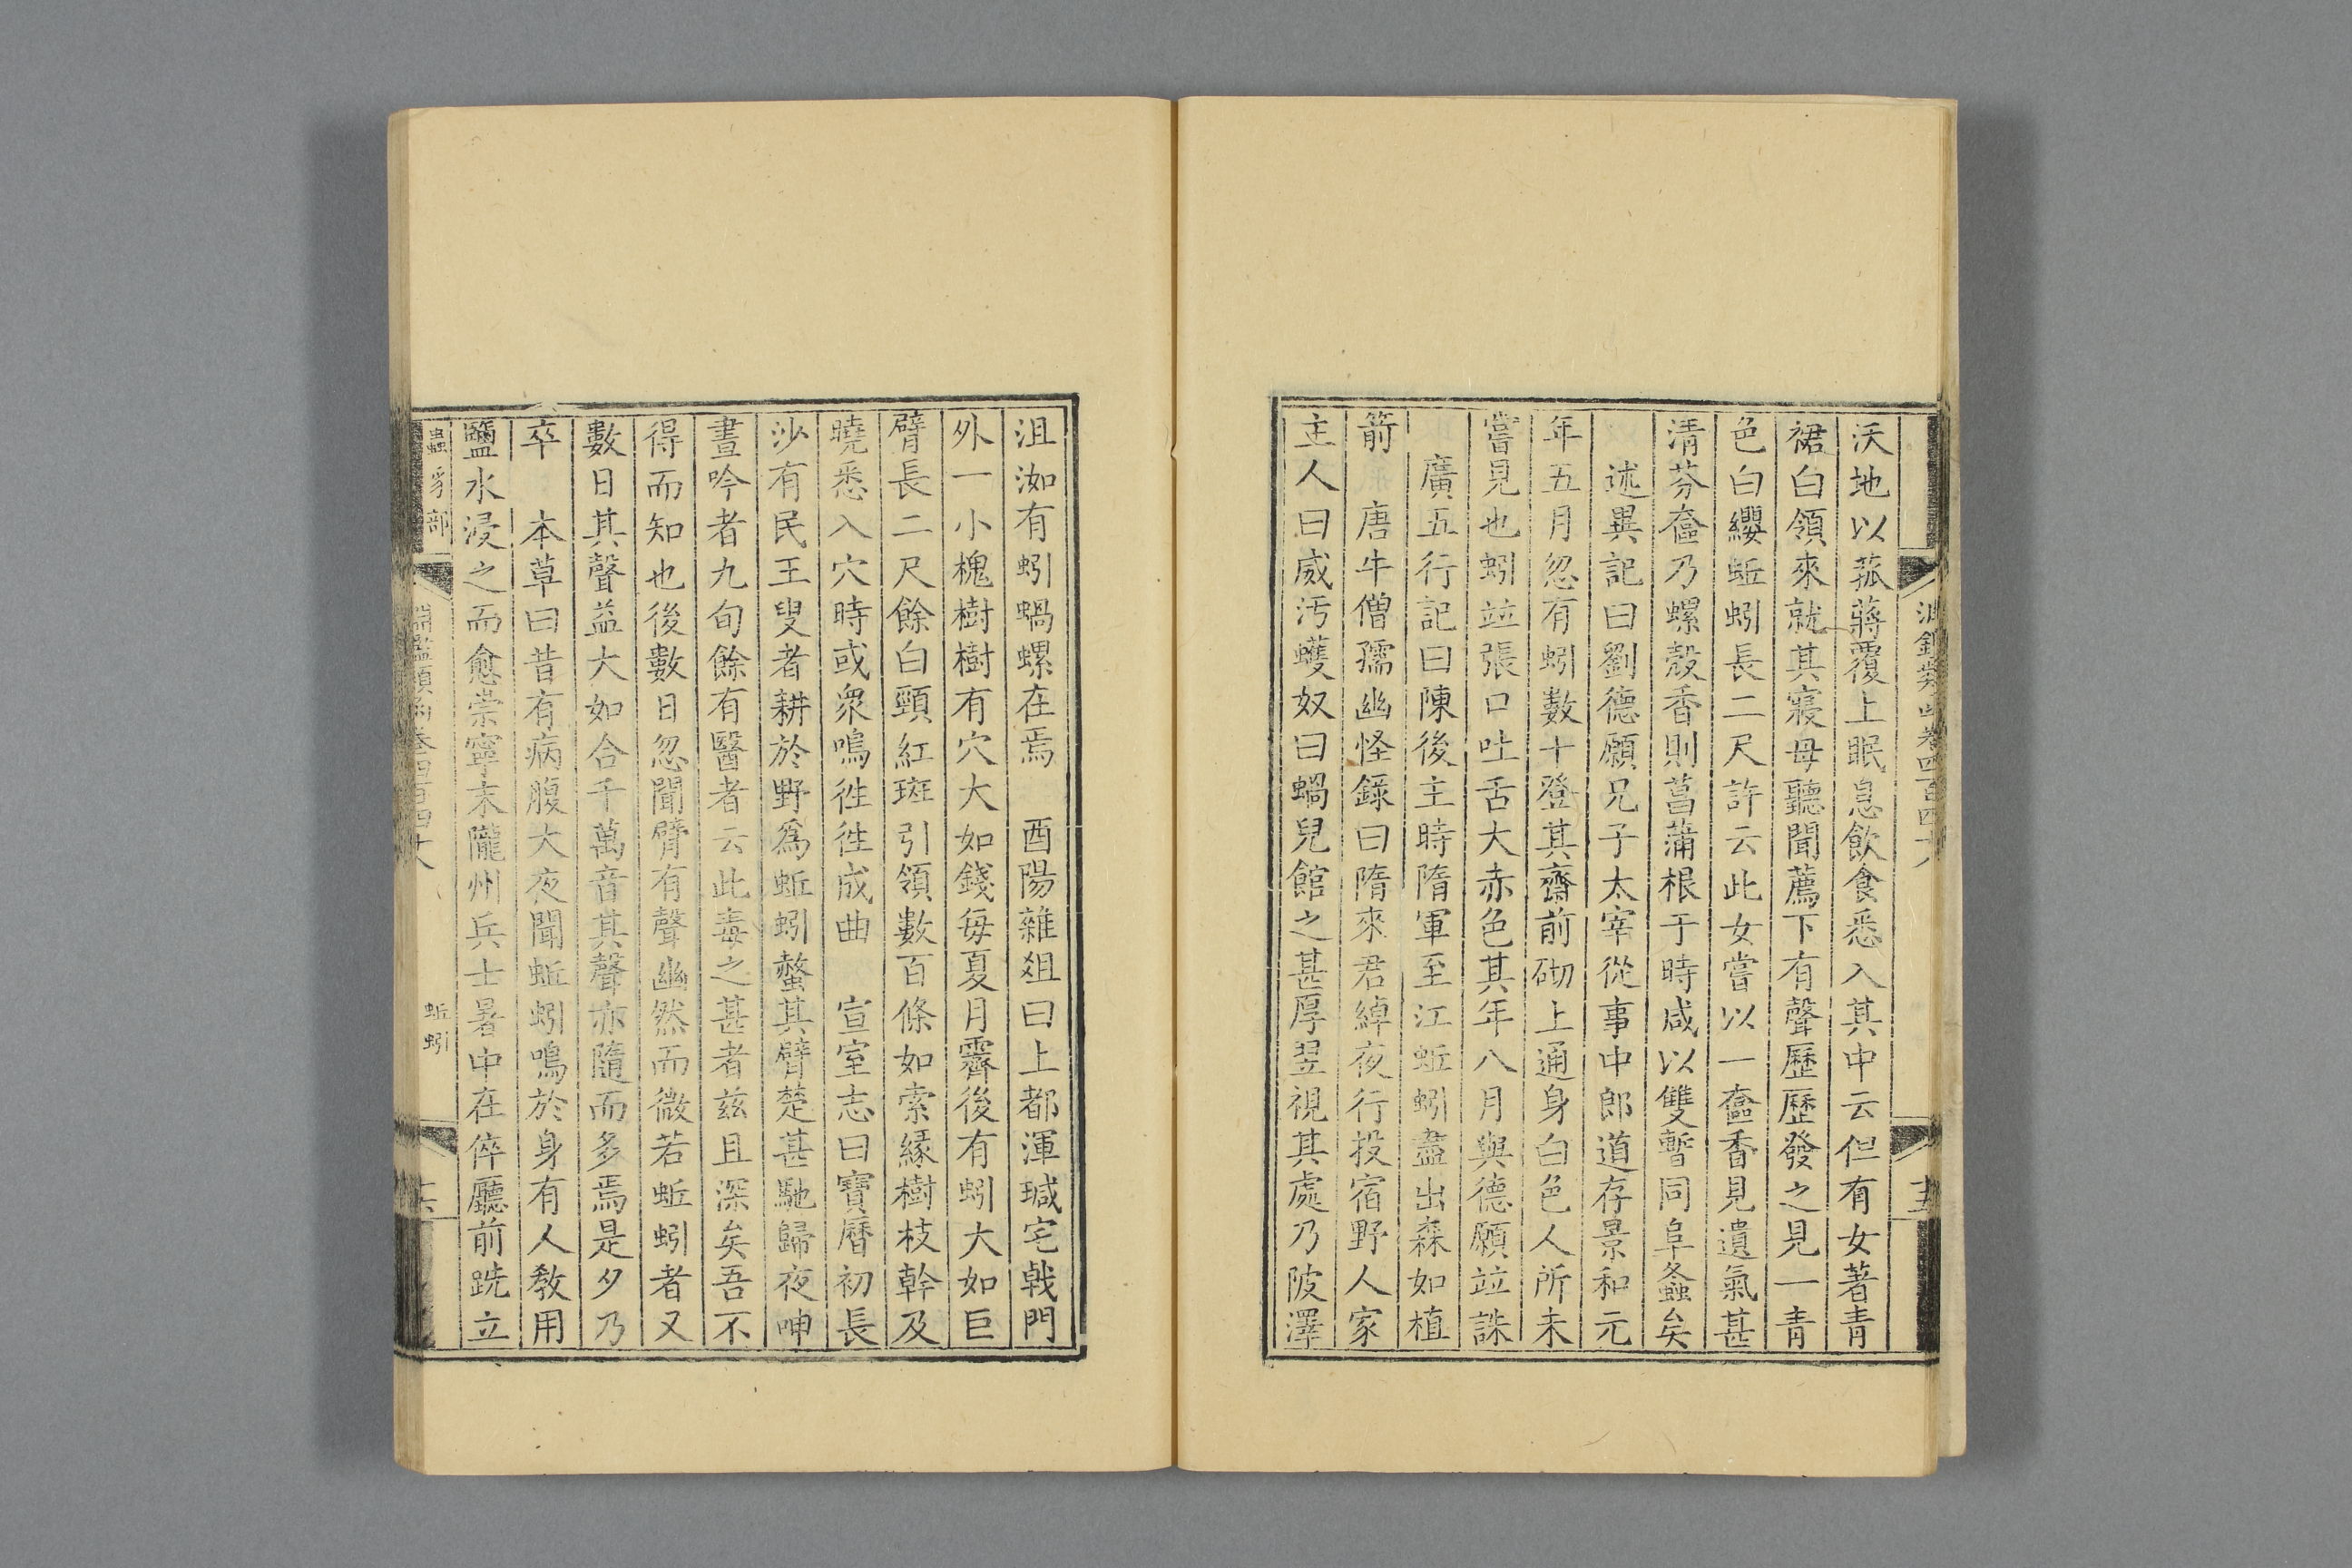 沃地以菰蔣覆上眠息飲食悉入其中云但有女著青
裙白領來就其寢母聽聞薦下有聲歷歷發之見一青
色白纓蚯蚓長二尺許云此女嘗以一奩香見遺氣甚
清芬奩乃螺殼香則菖蒲根于時咸以雙暫同阜螽矣
述異記曰劉德願兄子太宰從事中郎道存景和元
年五月忽有蚓數十登其齋前砌上通身白色人所未
嘗見也蚓竝張口吐舌大赤色其年八月與德願竝誅
廣五行記曰陳後主時隋軍至江蚯蚓盡出森如植
箭　唐牛僧孺幽怪錄曰隋來君綽夜行投宿野人家
主人曰威汚蠖奴曰蝸兒館之甚厚翌視其處乃陂澤
十五
沮洳有蚓蝸螺在焉　酉陽雜俎曰上都渾瑊宅戟門
外一小槐樹樹有穴大如錢每夏月霽後有蚓大如巨
臂長二尺餘白頸紅斑引領數百條如索緣樹枝幹及
曉悉入穴時或衆鳴徃徃成曲　宣室志曰寶曆初長
沙有民王叟者耕於野爲蚯蚓螫其臂楚甚馳歸夜呻
晝吟者九旬餘有醫者云此毒之甚者茲且深矣吾不
得而知也後數日忽聞臂有聲幽然而微若蚯蚓者又
數日其聲益大如合千萬音其聲亦隨而多焉是夕乃
卒　本草曰昔有病腹大夜聞蚯蚓鳴於身有人敎用
鹽水浸之而愈崇寧末隴州兵士暑中在倅廳前跣立
蟲豸部
淵鑑類函卷四百四十八
蚯蚓
十六